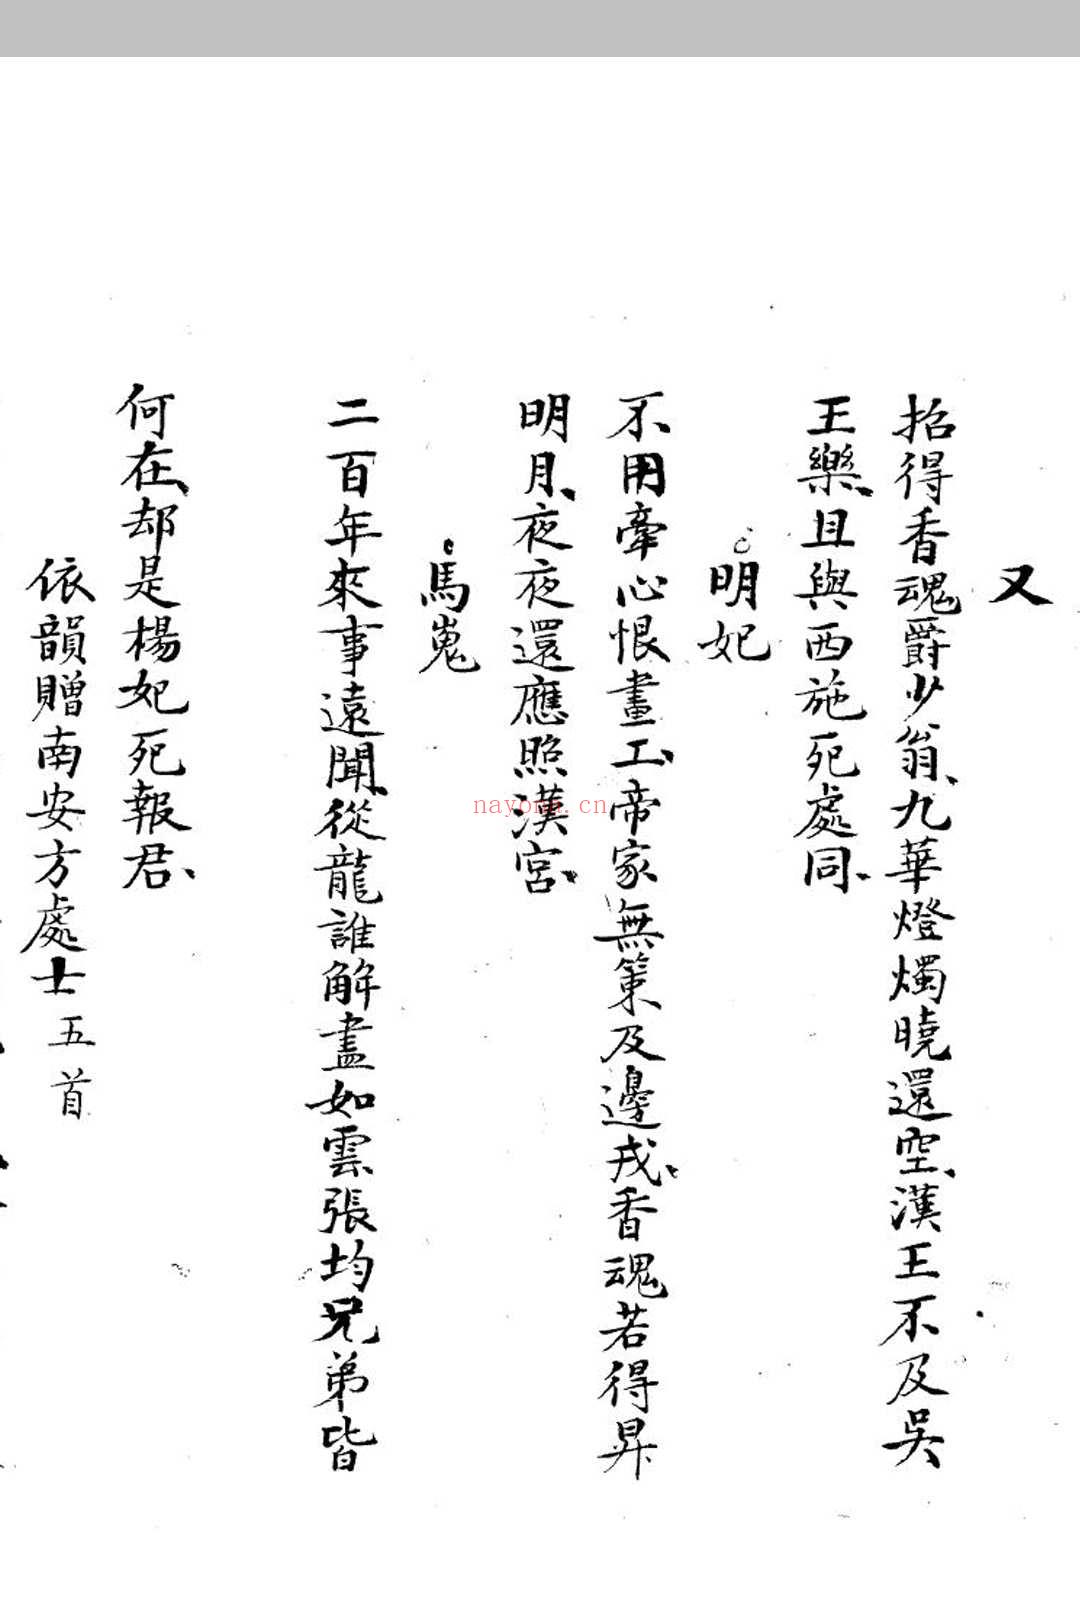 又
招得香魂爵少翁、九華燈燭曉還空、漢王不及吳
王樂、且與西施死處同、
明妃
不用牽心恨畫工、帝家無策及邊戎、香魂若得昇
明月、夜夜還應照漢宮、
馬嵬
二百年來事遠聞、從龍誰解盡如雲、張均兄弟皆
何在、却是楊妃死報君、
依韻贈南安方處士五首
nayona.cn